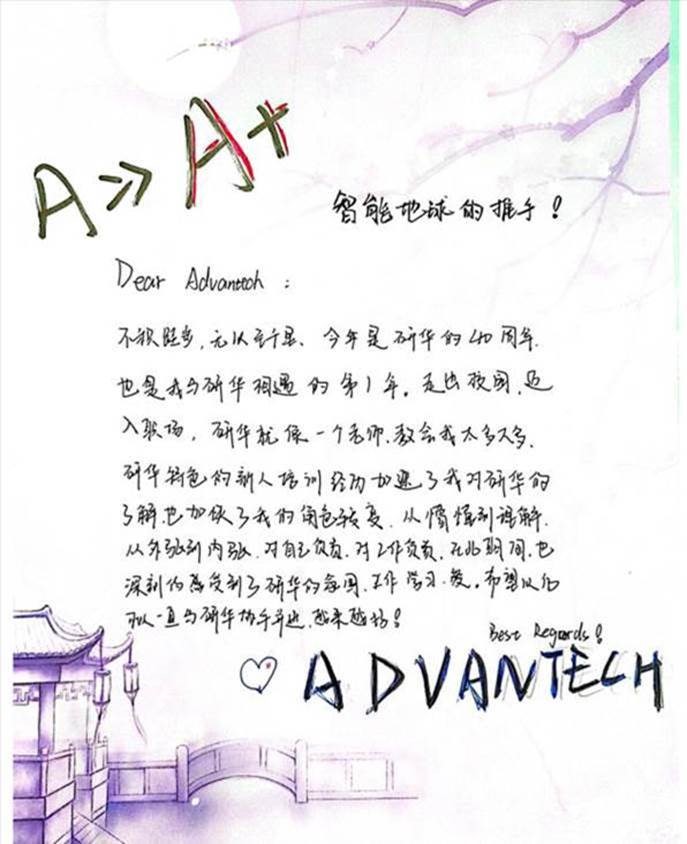 A >> A+
智能地球的推手！
Dear Advantech：
不积跬步，无以至千里、今年是研华的40周年.
也是我与研华相遇的第1年。走出校园，迈
入职场，研华就像一个老师.教会我太多太多.
研华特色的新人培训经历加速了我对研华的
了解.也加快了我的角色转变，从懵懂到理解.
从外张到内张.对自己负责.对工作负责.在此期间.也
深刻的感受到了研华的氛围.工作 学习.爱。希望以后
可以一直与研华携手并进.越来越好！
Best Regards！
♡ ADVANTECH